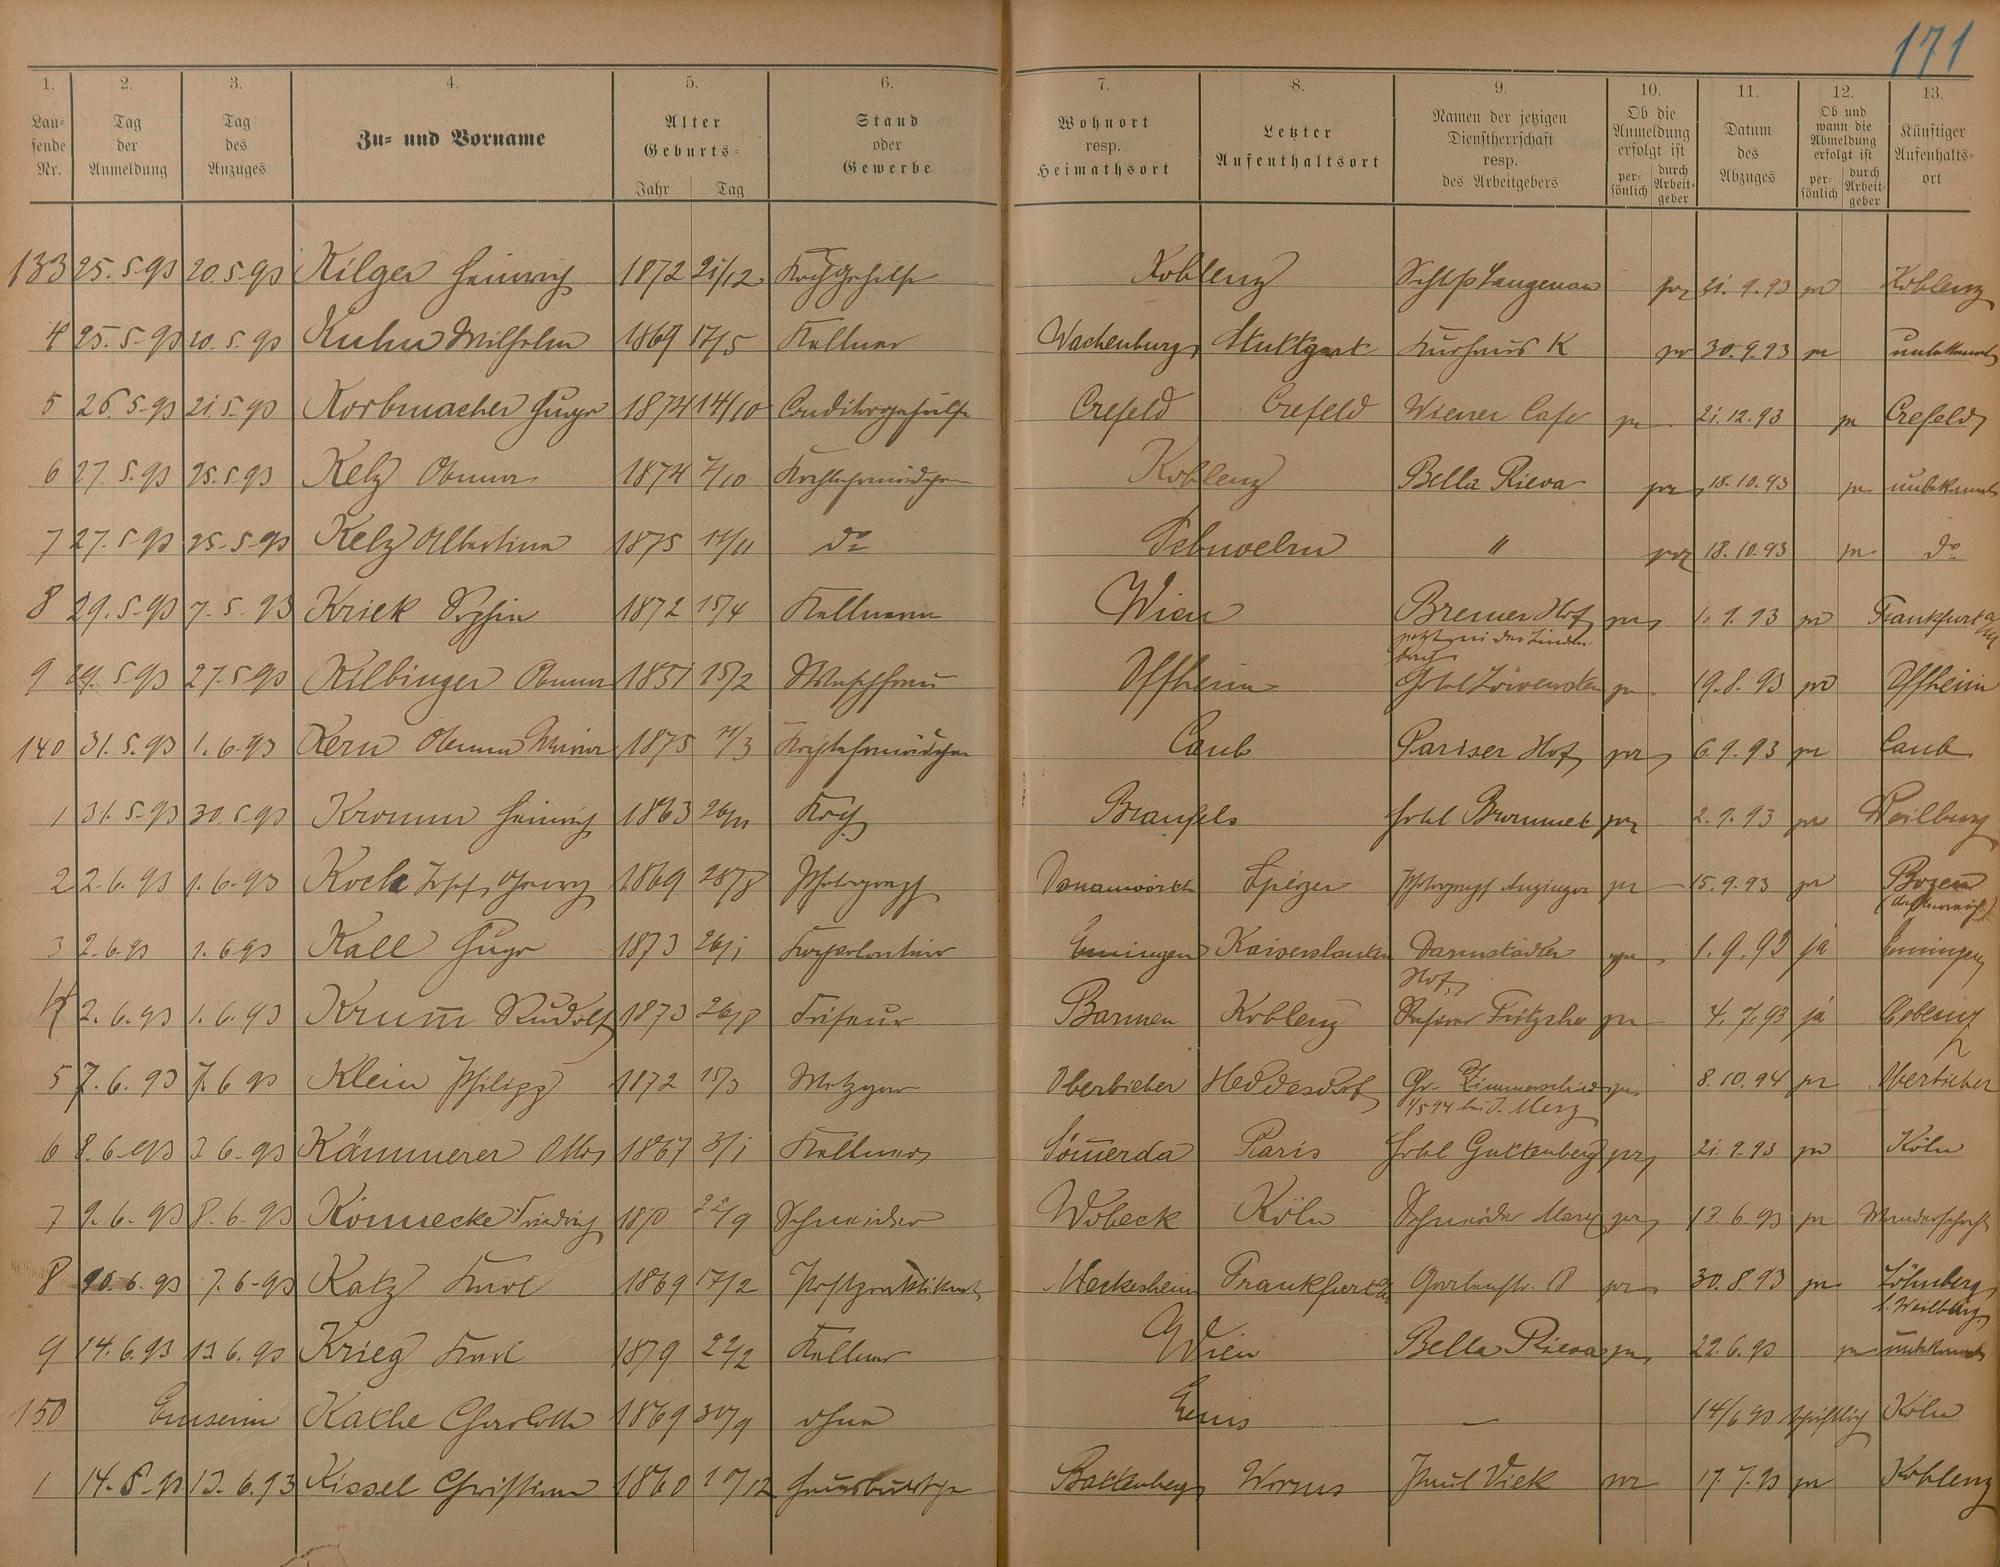 171
1. 2. 3. 4. 5. 6. 7. 8. 9. 10. 11. 12. 13.
Lau-
fende
Nr.
Tag
der
Anmeldung
Tag
des
Anzuges
Zu- und Vorname
Alter
Geburts-
Jahr Tag
Stand
oder
Gewerbe
Wohnort
resp.
Heimathsort
Letzter
Aufenthaltsort
Namen der jetzigen
Dienstherrschaft
resp.
des Arbeitgebers
Ob die
Anmeldung
erfolgt ist
per-
sönlich
durch
Arbeit-
geber
Datum
des
Abzuges
Ob und
wann die
Abmeldung
erfolgt ist
per-
sönlich
durch
Arbeit-
geber
Künftiger
Aufenhalts-
ort
133 25.5.93 20.5.93 Kilger Heinrich 1872 21/12 Kochgehilfe Koblenz Schloß Langenau pr 21.9.93 pr Koblenz
4 25.5.93 20.5.93 Kuhn Wilhelm 1869 17/5 Kellner Wachenburg Stuttgart Kurhaus K pr 30.9.93 pr unbekannt
5 26.5.93 21.5.93 Korbmacher Hugo 1874 14/10 Conditorgehülfe Crefeld Crefeld Wiener Cafe pr 21.12.93 pr Crefeld
6 27.5.93 25.5.93 Kelz Anna 1874 7/10 Kochlehrmädchen Koblenz Bella Rieva pr 18.10.93 pr unbekannt
7 27.5.93 25.5.93 Kelz Albertina 1875 do " pr 18.10.93 pr do
8 29.5.93 7.5.93 Kriek Sophie 1872 15/4 Kellnerin Wien Bremer Hof pr 1.9.93 pr Frankfurt a/M
jetzt in der Linden-
bach
9 29.5.93 27.5.93 Kilbinger Anna 1851 15/2 Waschfrau Offheim Hotel pr 19.8.93 pr Offheim
140 31.5.93 1.6.93 Kern Anna Maria 1875 Kochlehrmädchen Caub Pariser Hof pr 6.9.93 pr Caub
1 31.5.93 30.5.93 Kromm Heinrich 1863 26/11 Koch Braunfels Hotel pr 2.9.93 pr Weilburg
2 2.6.93 1.6.93 Koch Josef Georg 1869 28/8 Photograph Donauwörth Speyer Photograph Anzinger pr 15.9.93 pr Bozen
3 2.6.93 1.6.93 Kall Hugo 1873 26/1 Emingen Kaiserslautern Darmstädter 1.9.93 ja Emingen
Hof
4 2.6.93 1.6.93 Krum̅ Rudolf 1873 26/8 Friseur Barmen Koblenz Friseur Fritzsche pr 4.7.93 ja Coblenz
5 7.6.93 7.6.93 Klein Philipp 1872 15/3 Metzger Oberbieber Heddesdorf Gr. Zimmerschied pr 8.10.94 pr Oberbieber
1/5 94 bei J. Merz
6 8.6.93 3.6.93 Kämmerer Otto 1867 3/1 Kellner Söm̅erda Paris Hotel Guttenberg pr 21.9.93 pr Köln
7 9.6.93 8.6.93 Könnecke Friedrich 22/9 Schneider Wobeck Köln Schneider Marx pr 13.6.93 pr Wanderschaft
8 10.6.93 7.6.93 Katz Karl 1869 17/2 Postpraktikant Meckesheim Frankfurt a/M Gartenstr. 18 pr 30.8.93 pr Löhnberg
b. Weilburg
9 14.6.93 13.6.93 Krieg Karl 1879 22/2 Kellner Wien Bella Rieva pr 22.6.93 pr unbekannt
150 Emserin Kathe Charlotte 1869 30/9 ohne Ems — 14/6 93 schriftlich Köln
1 13.6.93 Kissel Christian 1860 Hausbursche Battenberg Worms Paul Viek pr 17.7.93 pr Koblenz